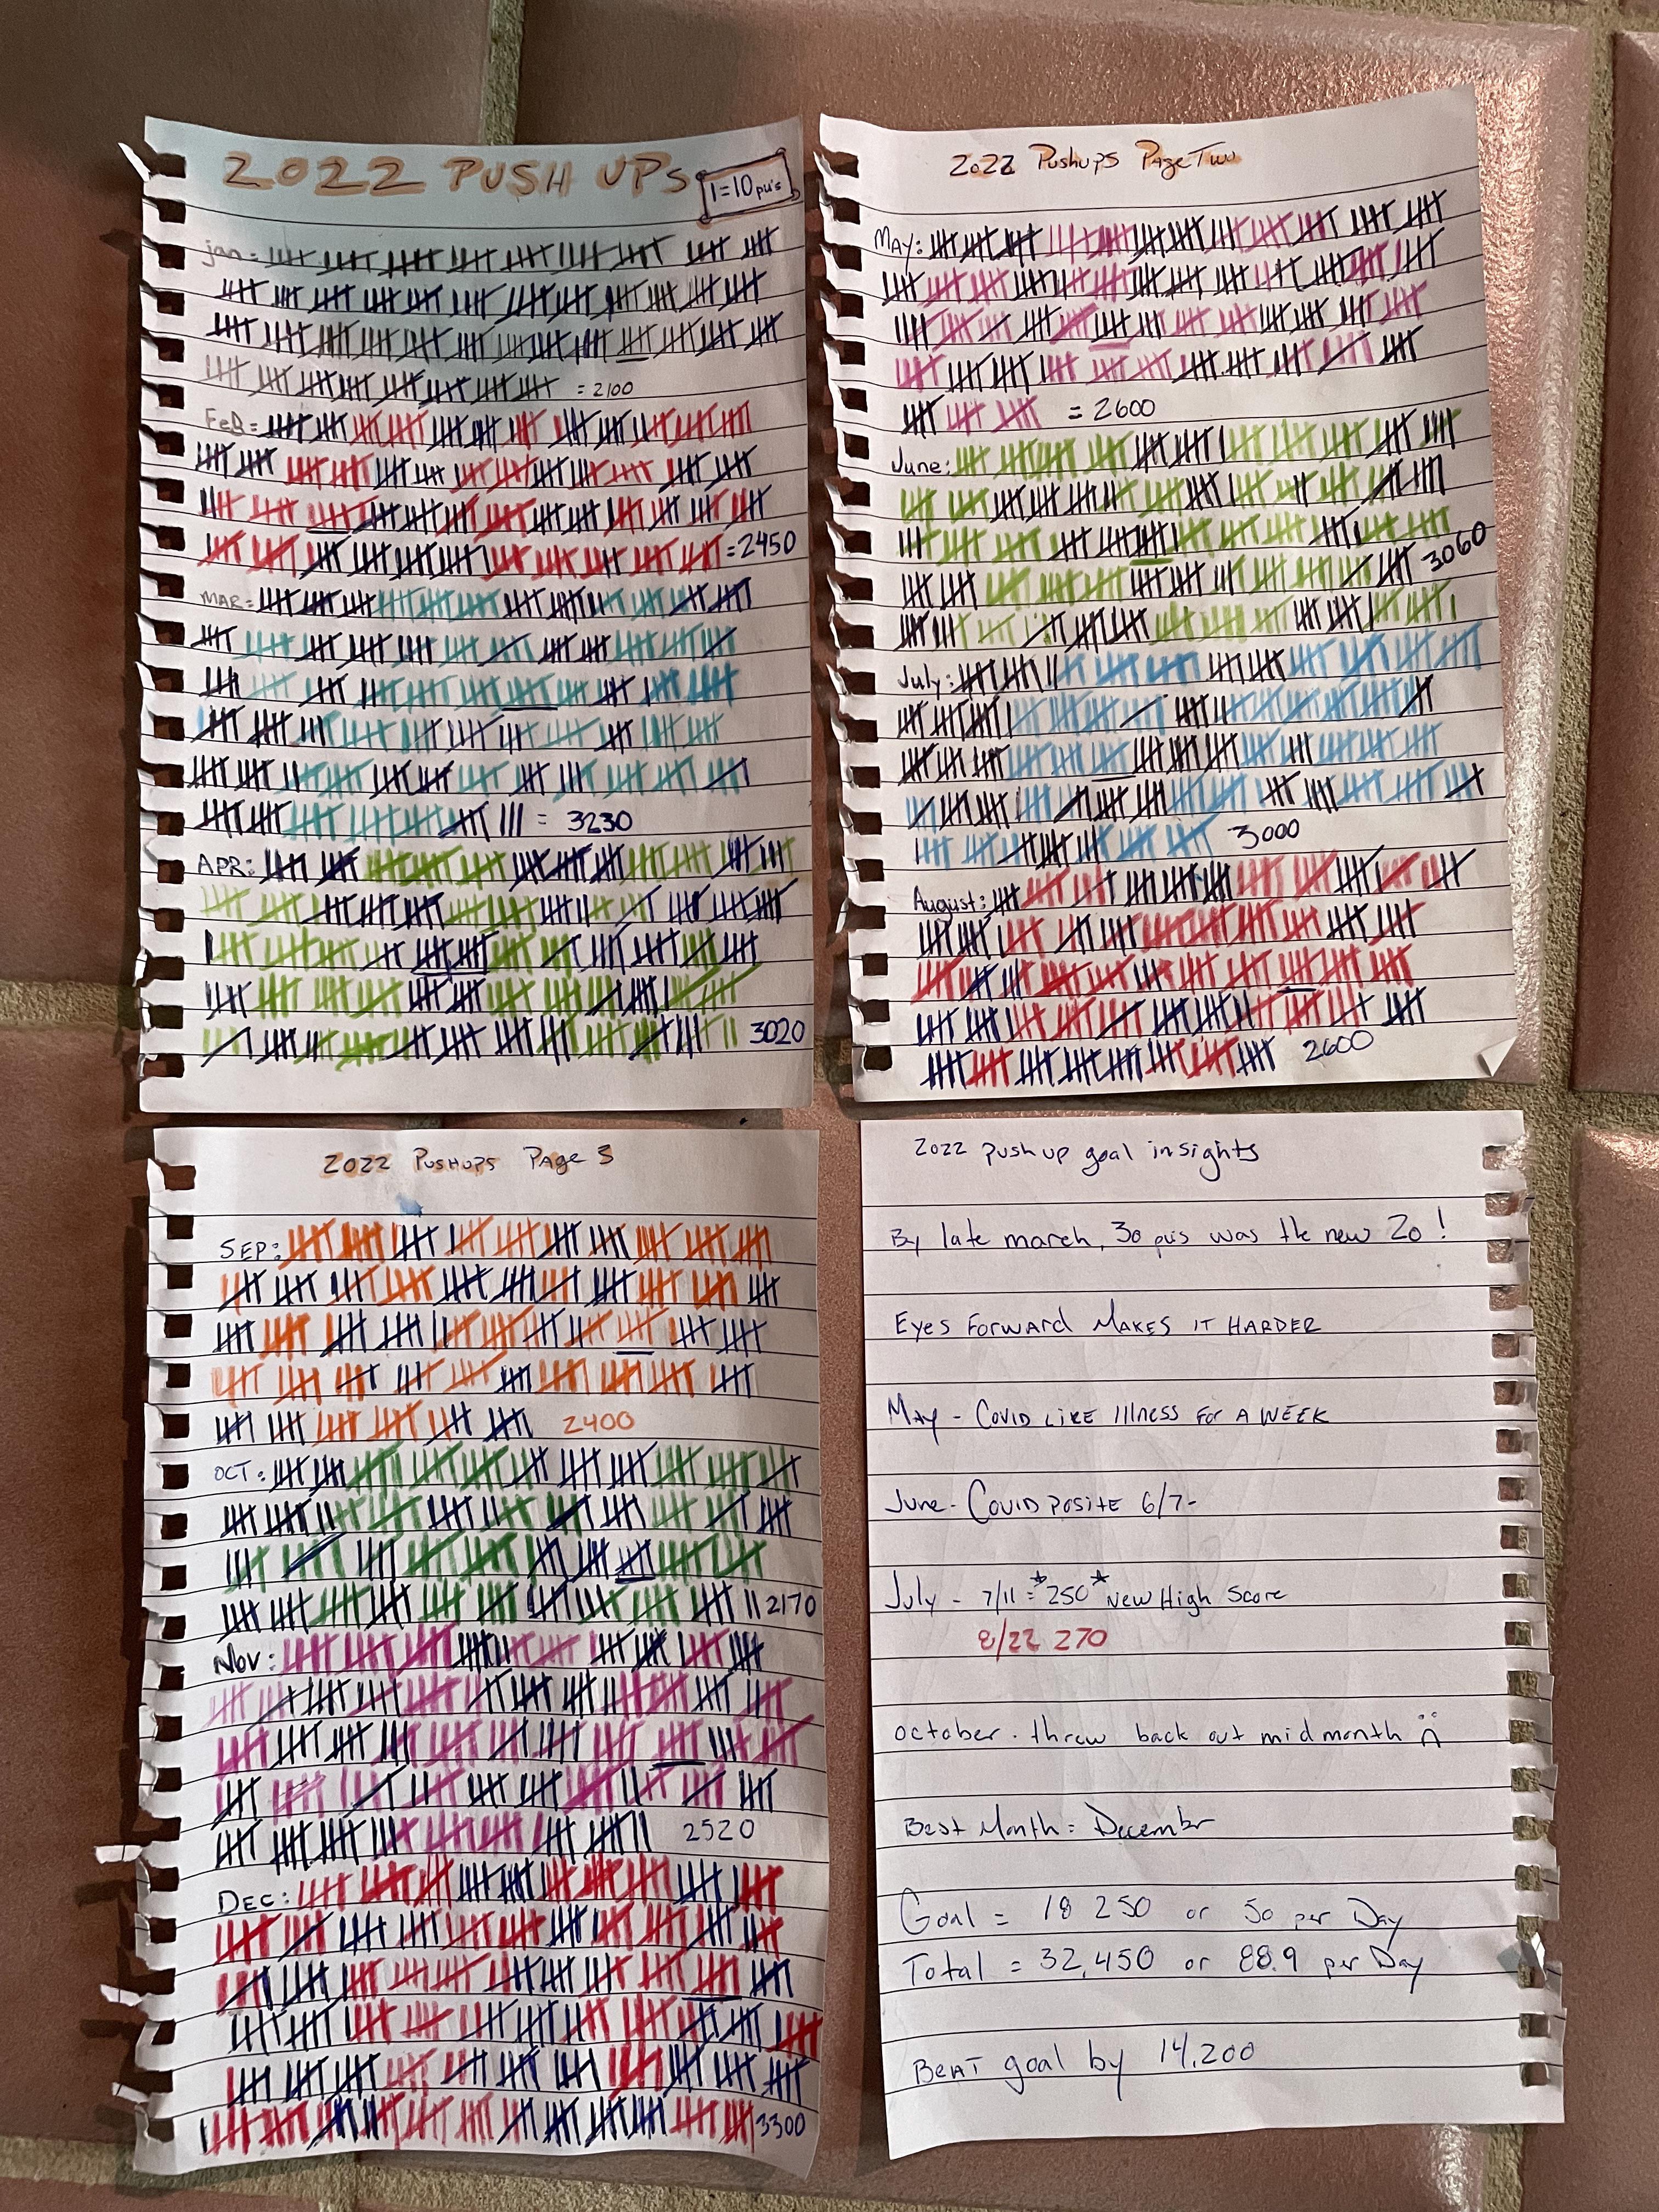 2022 PUSH UPs
1=10 pu's
jan:
= 2100
FeB=
=2450
MAR=
= 3230
APR:
3020
2022 Pushups Page Two
MAY:
= 2600
June:
3060
July:
3000
August:
2600
2022 Pushups Page 3
SEP:
2400
OCT:
2170
Nov:
2520
DEC:
3300
2022 push up goal insights
By late march, 30 pu's was the new 20!
Eyes Forward MAKES IT HARDER
May - Covid LIKE Illness for A WEEK
June - Covid posite 6/7-
July - 7/11 = *250* New High Score
8/22 270
October - threw back out mid month
Best Month: Decembr
Goal = 18 250 or 50 per Day
Total = 32,450 or 88.9 per Day
Beat goal by 14,200